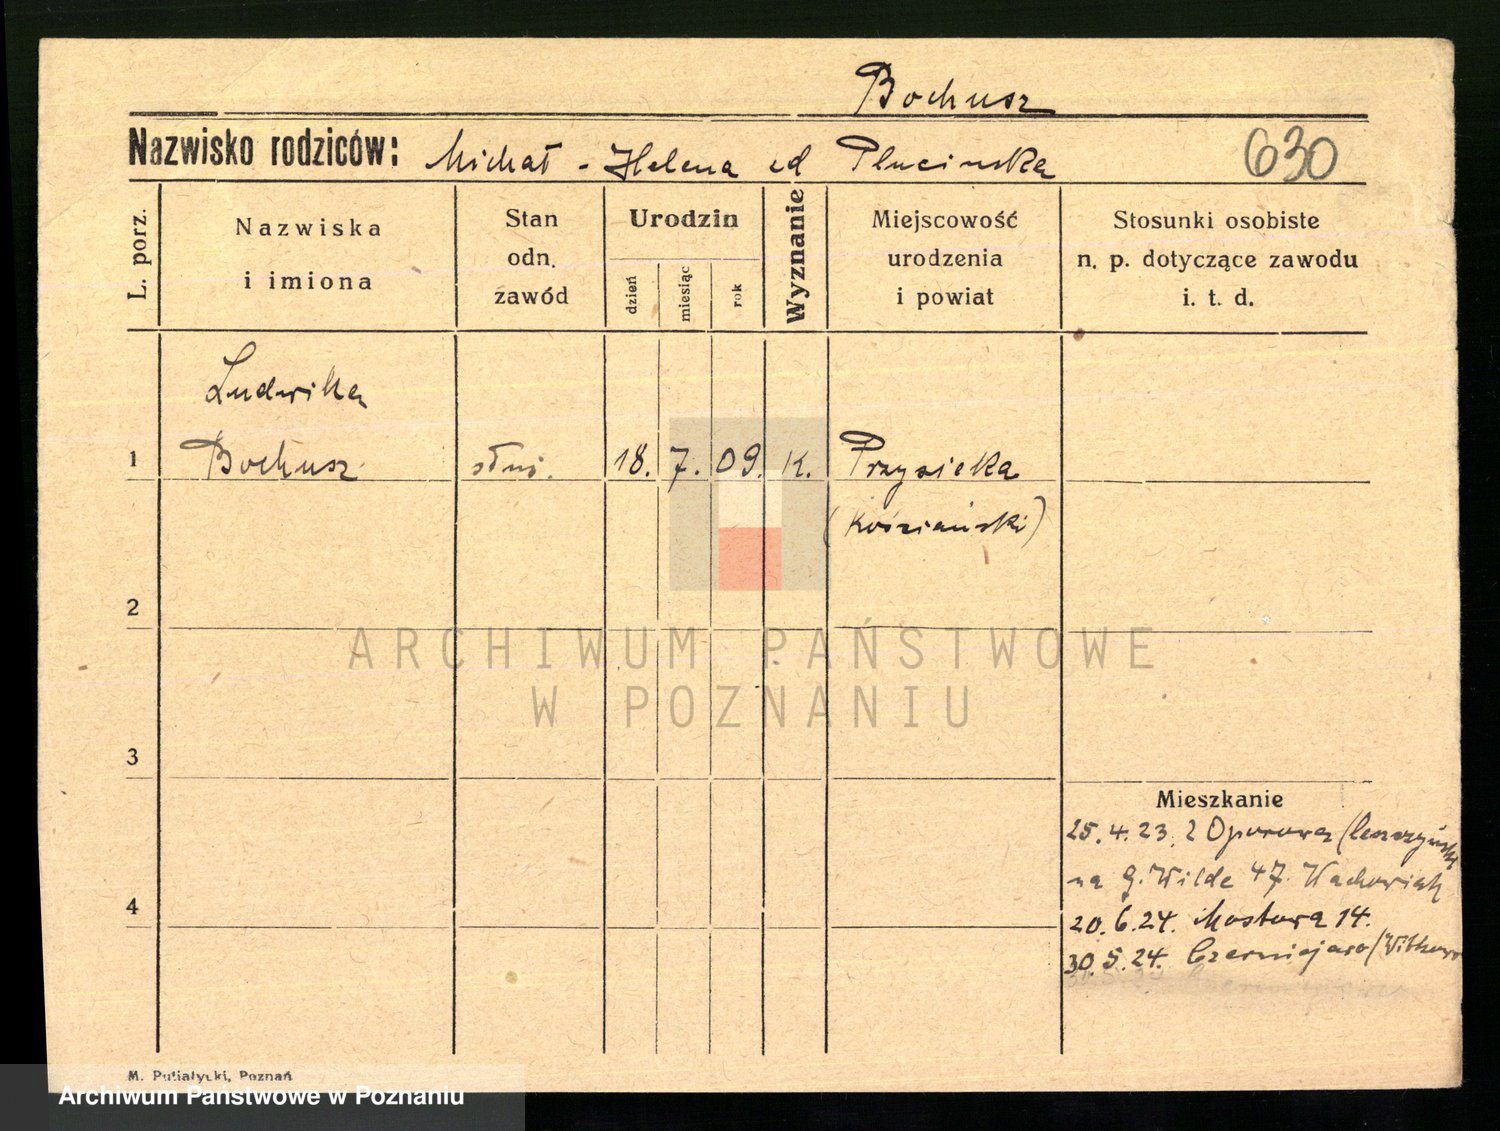 Bochusz
Nazwisko rodziców: Michał - Helena ed Plucinska 630
L. porz.
Nazwiska
i imiona
Stan
odn.
zawód
Urodzin
dzień
miesiąc
rok
Wyznanie
Miejscowość
urodzenia
i powiat
Stosunki osobiste
n. p. dotyczące zawodu
i. t. d.
Ludwika
1 Bochusz służ. 18. 7. 09. K. Przysieka
(Kościański)
2
3
Mieszkanie
25. 4. 23. z Oporowa (Leszczyński
na G. Wilde 47. Wachowiak
4
20. 6. 24. Mostowa 14.
30. 5. 24. Czerniejewo (Witkowo
ARCHIWUM PAŃSTWOWE
W POZNANIU
M. Putiatycki, Poznań
Archiwum Państwowe w Poznaniu